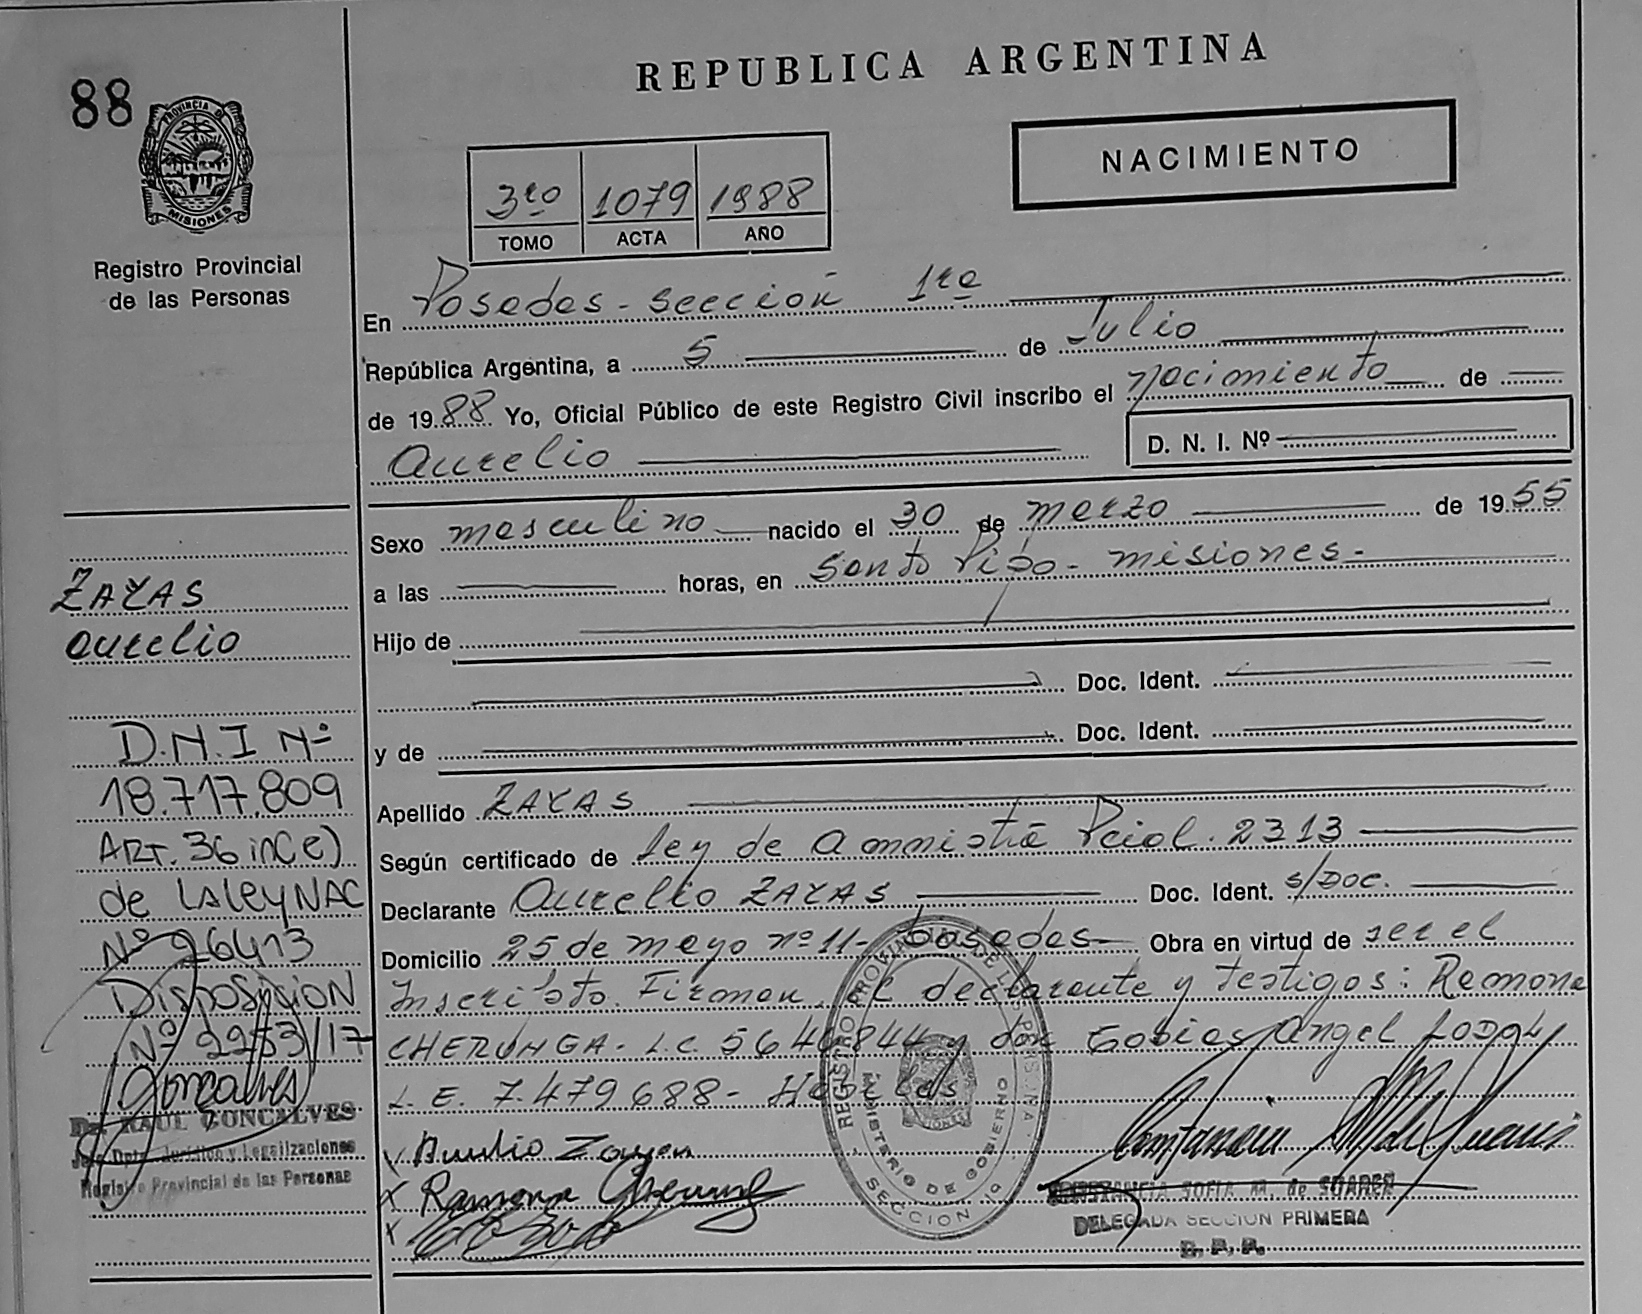 88
PROVINCIA DE
MISIONES
Registro Provincial
de las Personas
REPUBLICA ARGENTINA
NACIMIENTO
3ro 1079 1988
TOMO ACTA AÑO
En Posadas - sección 1ra
República Argentina, a 5 de Julio
de 1988 Yo, Oficial Público de este Registro Civil inscribo el nacimiento de
Aurelio D. N. I. Nº
Sexo masculino nacido el 30 de marzo de 1955
a las horas, en Santo Pipó - misiones -
Hijo de
Doc. Ident.
y de Doc. Ident.
Apellido ZAYAS
Según certificado de Ley de Amnistía Pcial. 2313
Declarante Aurelio ZAYAS Doc. Ident. s/Doc.
Domicilio 25 de mayo nº 11 - Posadas - Obra en virtud de ser el
Inscripto. Firman el declarante y testigos: Ramona
CHERUNGA - L.C. 5646844 y don Tobias Angel
L. E. 7.479688 - Hábiles
Aurelio Zayas
Ramona
ZAYAS
Aurelio
D.N.I Nº
18.717.809
ART. 36 inc e)
de LA Ley NAC
Nº 26413
Disposición
Nº 2253/17
Goncalves
Dr. RAUL GONCALVES
Jefe Dpto. Jurídico y Legalizaciones
Registro Provincial de las Personas
REGISTRO PROVINCIAL DE LAS PERSONAS
MINISTERIO DE GOBIERNO
SECCION 1a
CONSTANCIA SOFIA M. de SUAREZ
DELEGADA SECCION PRIMERA
R. P. P.